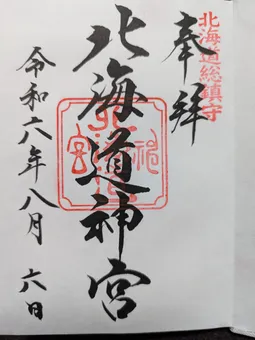 北海道総鎮守
奉拝
北海道神宮
令和六年八月六日